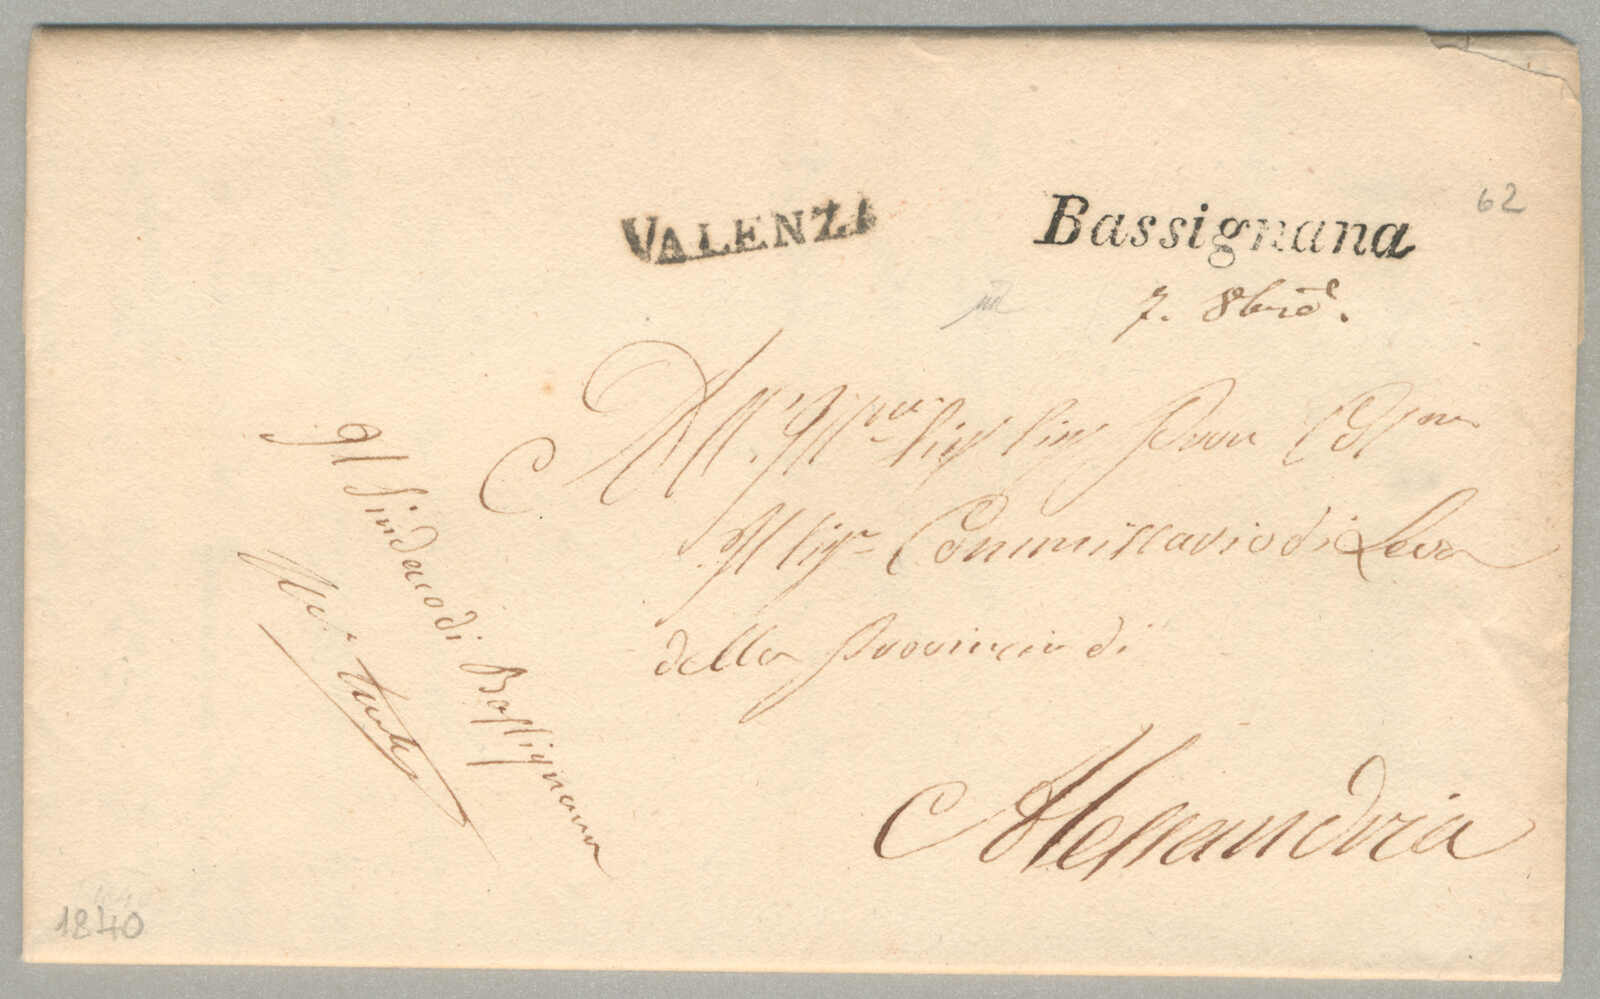 VALENZA
Bassignana
62
7. 8bre.
All' Ill.mo Sig.
Il Sig.r Commissario di Leva
della Provincia di
Alessandria
Il Sindaco di Bassignana
1840